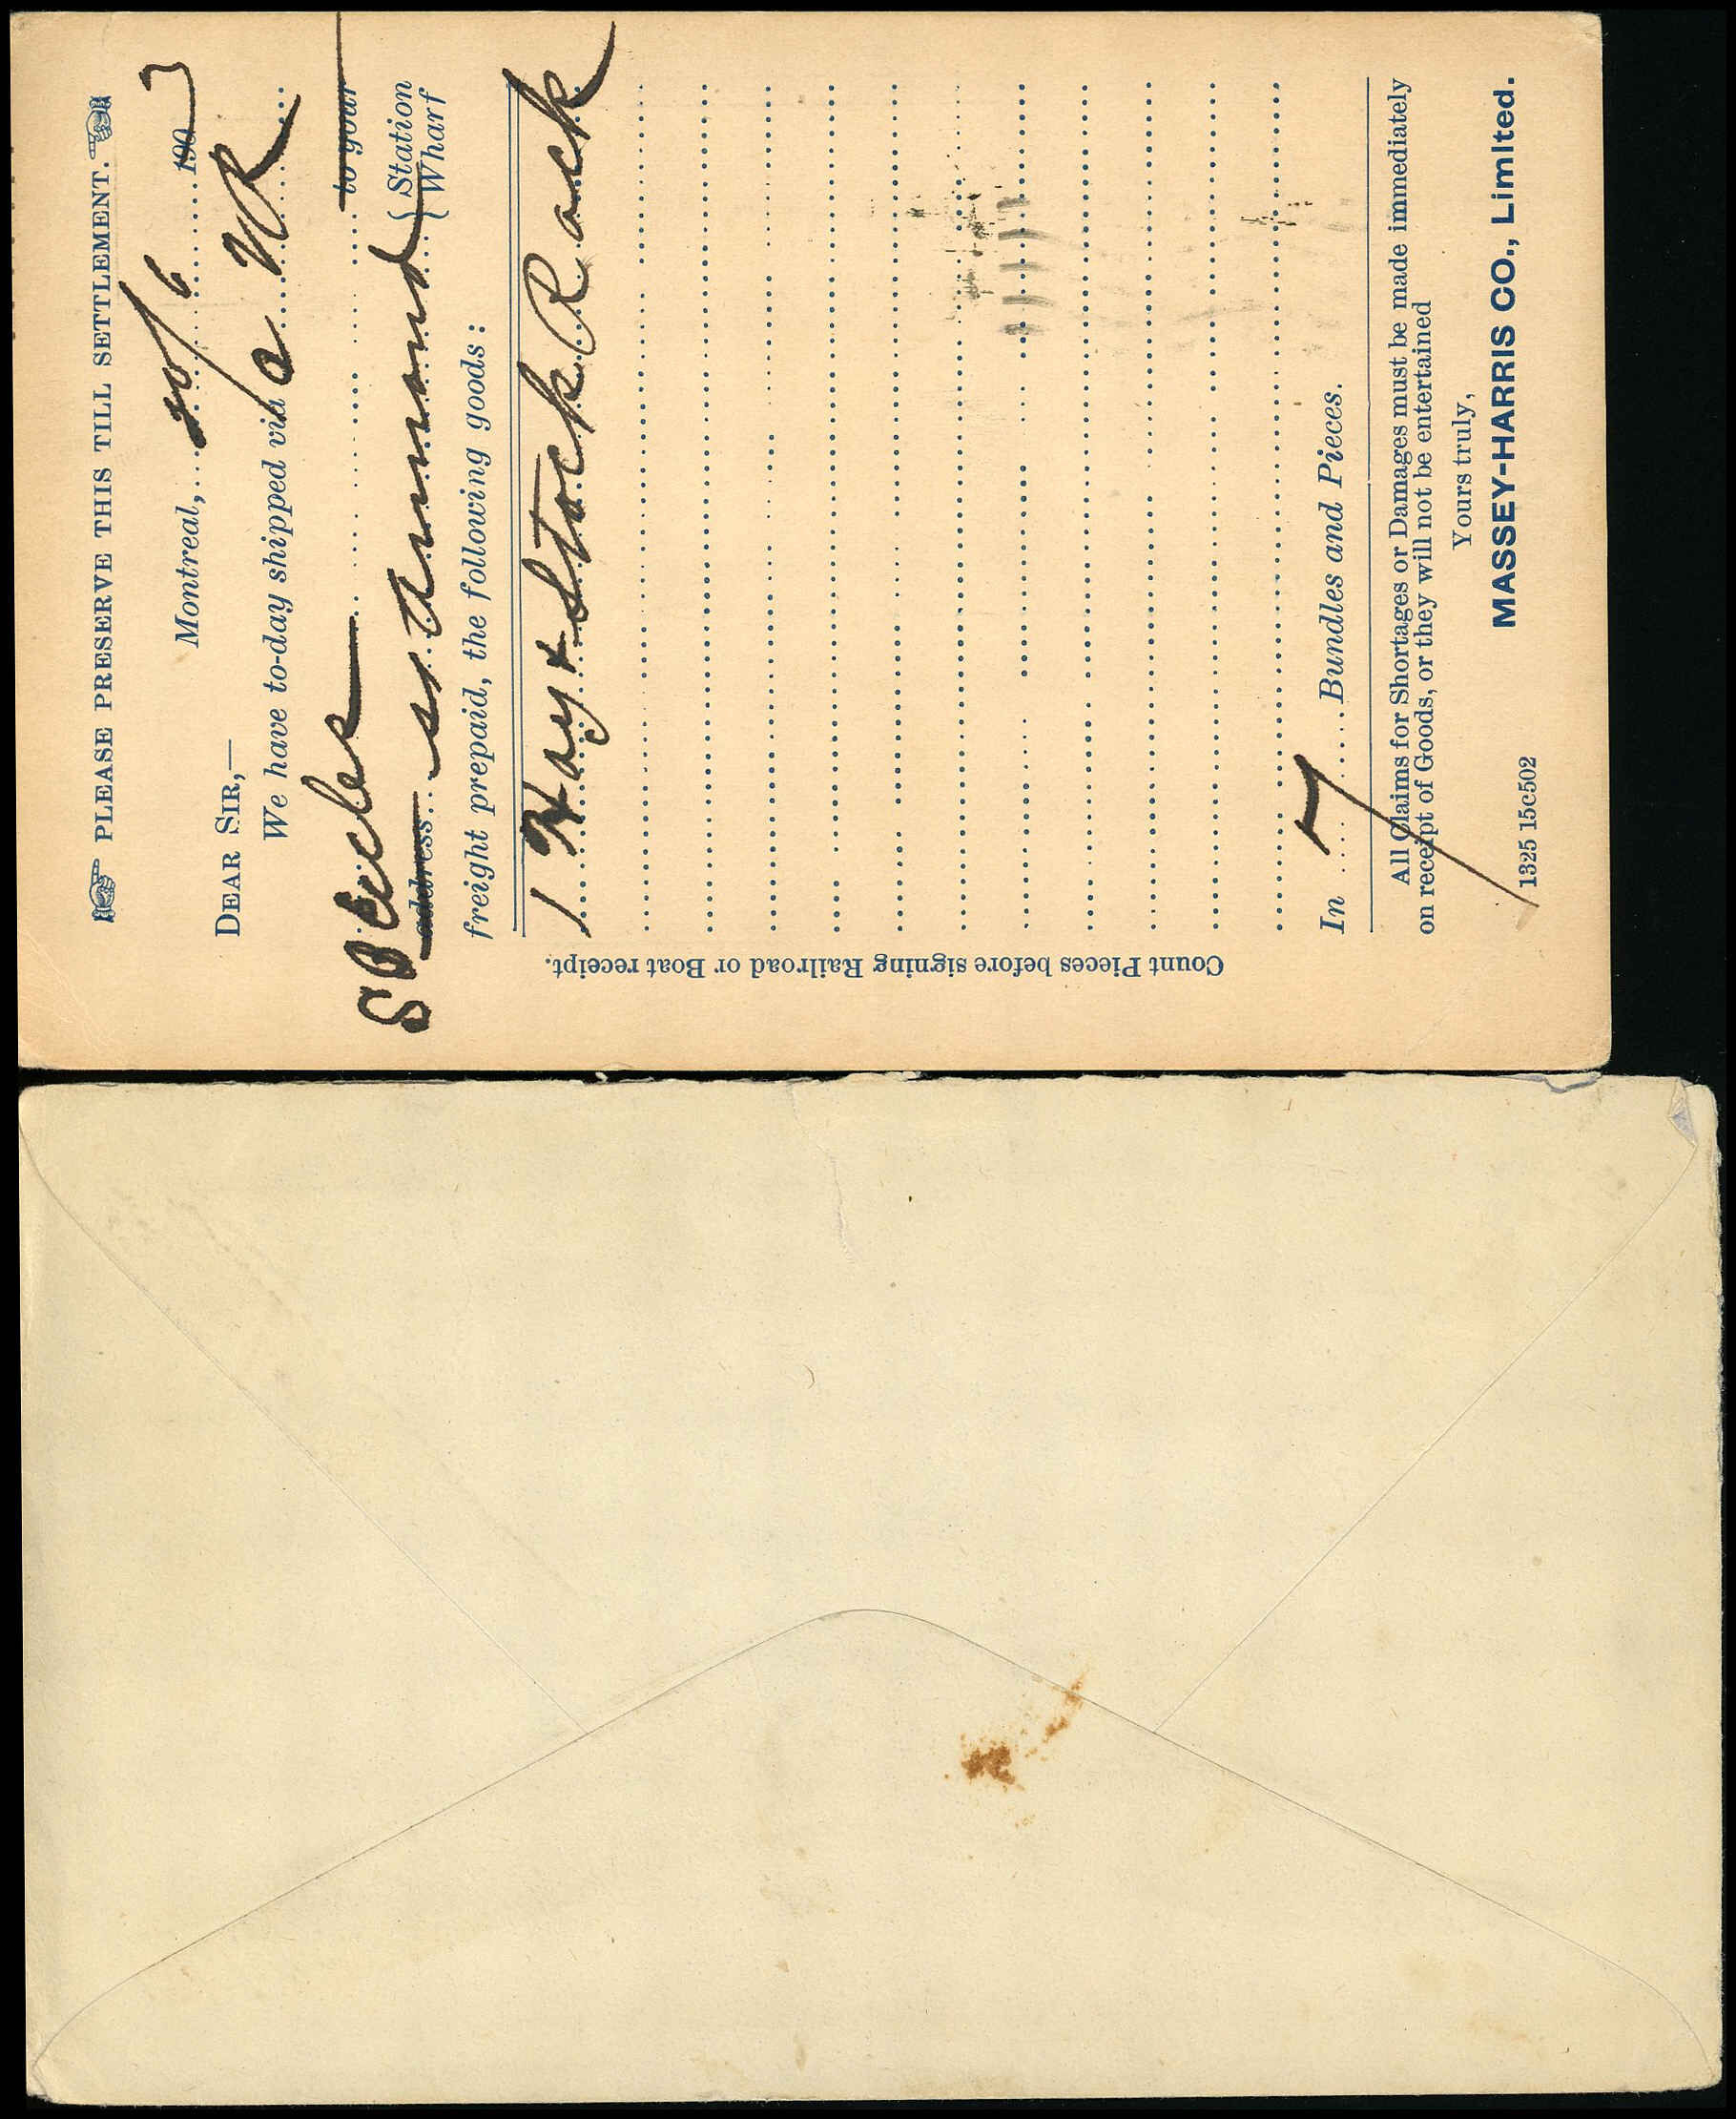 PLEASE PRESERVE THIS TILL SETTLEMENT.
Montreal, 20/6 1903
DEAR SIR,—
We have to-day shipped via C V R
to your
S B Eccles
address St Armand { Station
Wharf
freight prepaid, the following goods:
1 Hay & Stock Rack
In 7 Bundles and Pieces.
All Claims for Shortages or Damages must be made immediately
on receipt of Goods, or they will not be entertained
Yours truly,
MASSEY-HARRIS CO., Limited.
1325 15c502
Count Pieces before signing Railroad or Boat receipt.